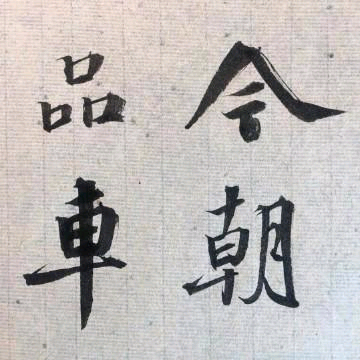 今朝
品車